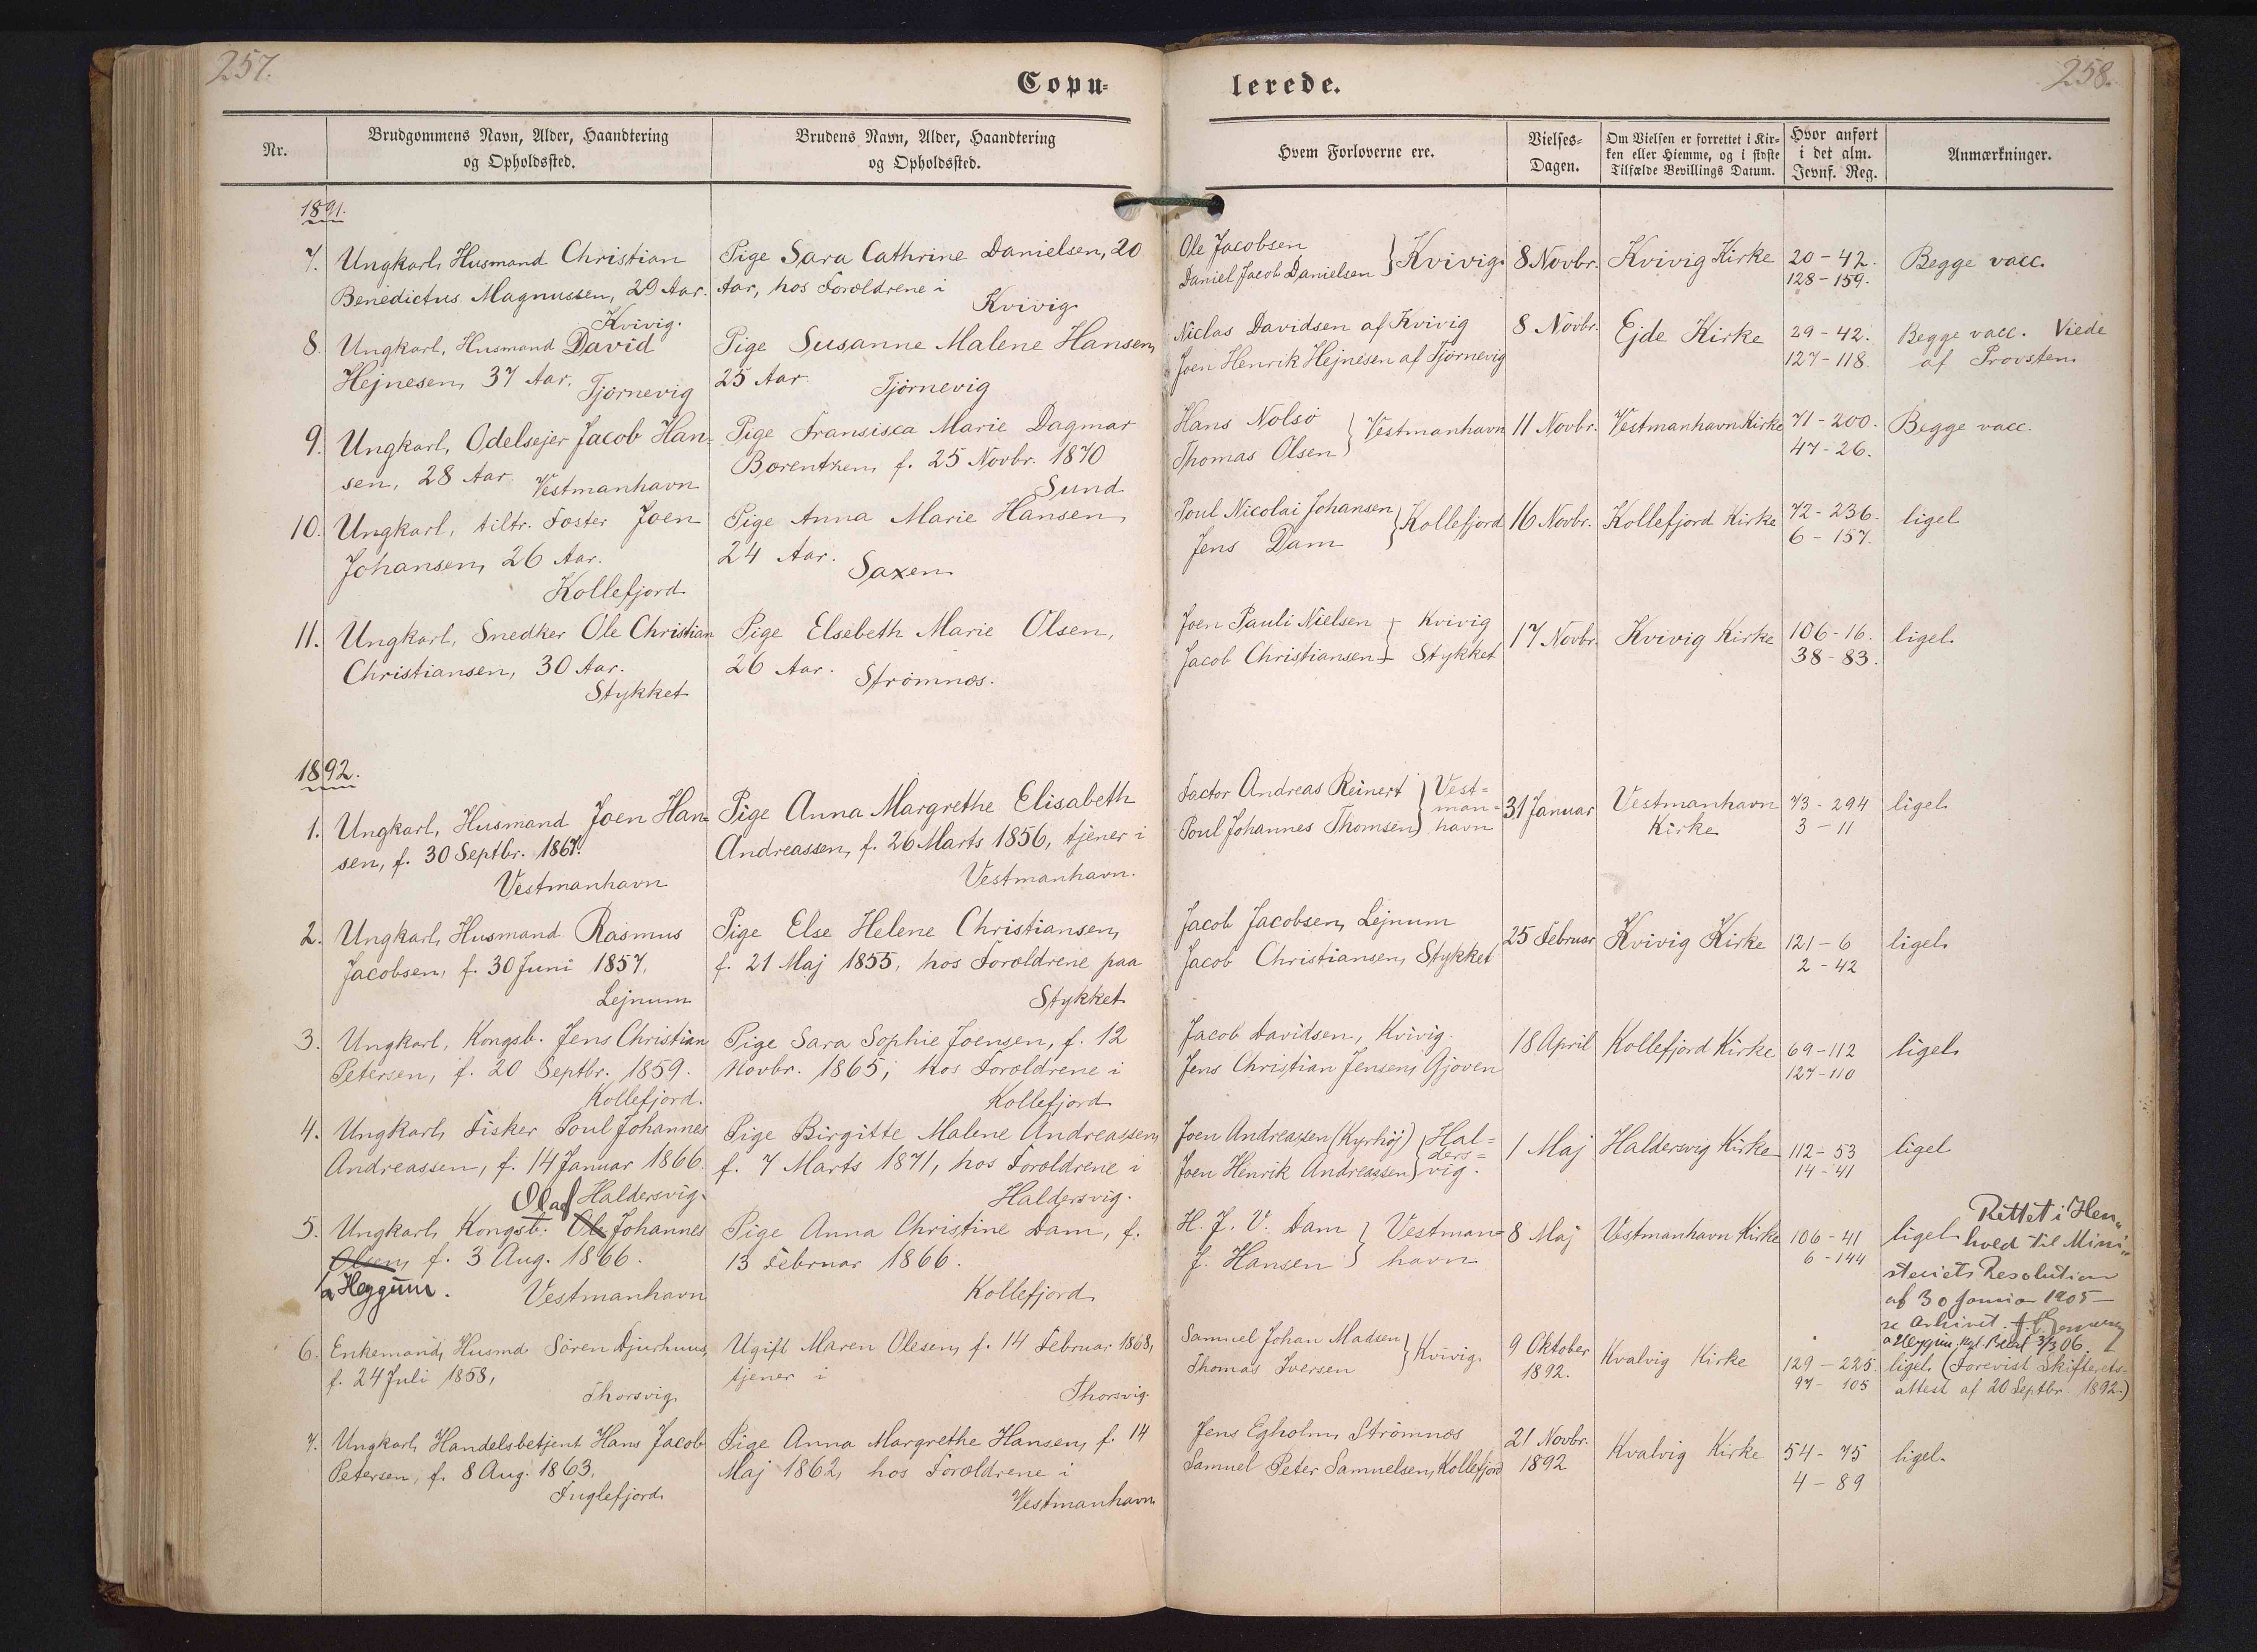 257.
Copu-
lerede.
258.
Nr.
Brudgommens Navn, Alder, Haandtering
og Opholdssted.
Brudens Navn, Alder, Haandtering
og Opholdssted.
Hvem Forloverne ere.
Vielses-
Dagen.
Om Vielsen er forrettet i Kir-
ken eller Hjemme, og i sidste
Tilfælde Bevillings Datum.
Hvor anført
i det alm.
Jevnf. Reg.
Anmærkninger.
1891.
7. Ungkarl, Husmand Christian
Benedictus Magnussen, 29 Aar.
Kvivig.
Pige Sara Cathrine Danielsen, 20
Aar, hos Forældrene i
Kvivig.
Ole Jacobsen
Daniel Jacob Danielsen } Kvivig.
8 Novbr.
Kvivig Kirke
20 - 42.
128 - 159.
Begge vacc.
8. Ungkarl, Husmand David
Hejnesen, 37 Aar.
Tjørnevig
Pige Susanne Malene Hansen,
25 Aar.
Tjørnevig
Niclas Davidsen af Kvivig
Joen Henrik Hejnesen af Tjørnevig
8 Novbr.
Ejde Kirke
29 - 42.
127 - 118.
Begge vacc. Viede
af Provsten.
9. Ungkarl, Odelsejer Jacob Han-
sen, 28 Aar.
Vestmanhavn
Pige Fransisca Marie Dagmar
Børentzen, f. 25 Novbr. 1870
Sund
Hans Nolsø
Thomas Olsen } Vestmanhavn
11 Novbr.
Vestmanhavn Kirke
71 - 200.
47 - 26.
Begge vacc.
10. Ungkarl, tiltr. Fæster Joen
Johansen, 26 Aar.
Kollefjord
Pige Anna Marie Hansen,
24 Aar.
Saxen.
Poul Nicolai Johansen
Jens Dam } Kollefjord
16 Novbr.
Kollefjord Kirke
72 - 236.
6 - 157.
ligel.
11. Ungkarl, Snedker Ole Christian
Christiansen, 30 Aar.
Stykket
Pige Elsebeth Marie Olsen,
26 Aar.
Strømnæs.
Joen Pauli Nielsen Kvivig
Jacob Christiansen Stykket
17 Novbr.
Kvivig Kirke
106 - 16.
38 - 83.
ligel.
1892.
1. Ungkarl, Husmand Joen Han-
sen, f. 30 Septbr. 1867.
Vestmanhavn
Pige Anna Margrethe Elisabeth
Andreassen, f. 26 Marts 1856, tjener i
Vestmanhavn.
Factor Andreas Reinert
Poul Johannes Thomsen } Vest-
man-
havn
31 Januar
Vestmanhavn
Kirke
73 - 294
3 - 11
ligel.
2. Ungkarl, Husmand Rasmus
Jacobsen, f. 30 Juni 1857.
Lejnum
Pige Else Helene Christiansen,
f. 21 Maj 1855, hos Forældrene paa
Stykket
Jacob Jacobsen, Lejnum
Jacob Christiansen, Stykket
25 Februar
Kvivig Kirke
121 - 6
2 - 42
ligel.
3. Ungkarl, Kongsb. Jens Christian
Petersen, f. 20 Septbr. 1859.
Kollefjord.
Pige Sara Sophie Joensen, f. 12
Novbr. 1865, hos Forældrene i
Kollefjord
Jacob Davidsen, Kvivig.
Jens Christian Jensen, Gjøven
18 April
Kollefjord Kirke
69 - 112
127 - 110
ligel.
4. Ungkarl, Fisker Poul Johannes
Andreassen, f. 14 Januar 1866.
Haldersvig.
Pige Birgitte Malene Andreassen,
f. 7 Marts 1871, hos Forældrene i
Haldersvig.
Joen Andreassen (Kyrhøj)
Joen Henrik Andreassen } Hal-
ders-
vig.
1 Maj
Haldersvig Kirke
112 - 53
14 - 41
ligel
Olaf
5. Ungkarl, Kongsb. Ole Johannes
Olsen, f. 3 Aug. 1866.
a Heygum.
Vestmanhavn
Pige Anna Christine Dam, f.
13 Februar 1866.
Kollefjord
H. J. V. Dam
J. Hansen } Vestman-
havn
8 Maj
Vestmanhavn Kirke
106 - 41
6 - 144
ligel.
Rettet i Hen-
hold til Mini-
steriets Resolution
af 30 Januar 1905
se Arkivet.
a Heygum. 3/3 06.
6. Enkemand, Husmd. Sören Djurhuus,
f. 24 Juli 1858,
Thorsvig
Ugift Maren Olesen, f. 14 Februar 1868,
tjener i
Thorsvig.
Samuel Johan Madsen
Thomas Iversen } Kvivig.
9 Oktober
1892.
Kvalvig Kirke
129 - 225.
97 - 105
ligel. (Forevist Skifterets-
attest af 20 Septbr. 1892.)
7. Ungkarl, Handelsbetjent Hans Jacob
Petersen, f. 8 Aug. 1863.
Fuglefjord
Pige Anna Margrethe Hansen, f. 14
Maj 1862, hos Forældrene i
Vestmanhavn
Jens Egholm, Strømnæs
Samuel Peter Samuelsen, Kollefjord
21 Novbr.
1892
Kvalvig Kirke
54 - 75
4 - 89
ligel.